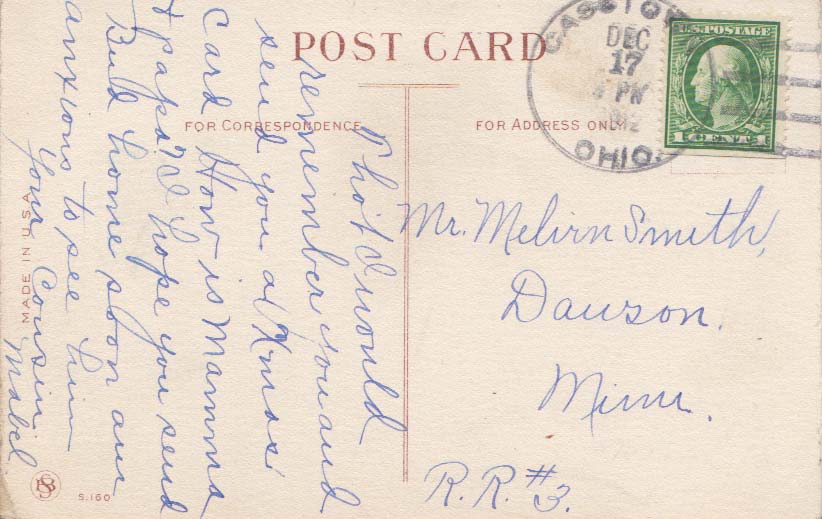 POST CARD
FOR CORRESPONDENCE
FOR ADDRESS ONLY
DEC
17
PM
OHIO.
U.S. POSTAGE
1 CENT 1
Thot I would
remember you and
send you a Xmas
Card How is Mamma
& papa? I hope you send
Bud home soon our
anxious to see him
Your Cousin
Mabel.
Mr. Melvin Smith,
Dawson.
Minn.
R.R. #3.
MADE IN U.S.A.
S.160